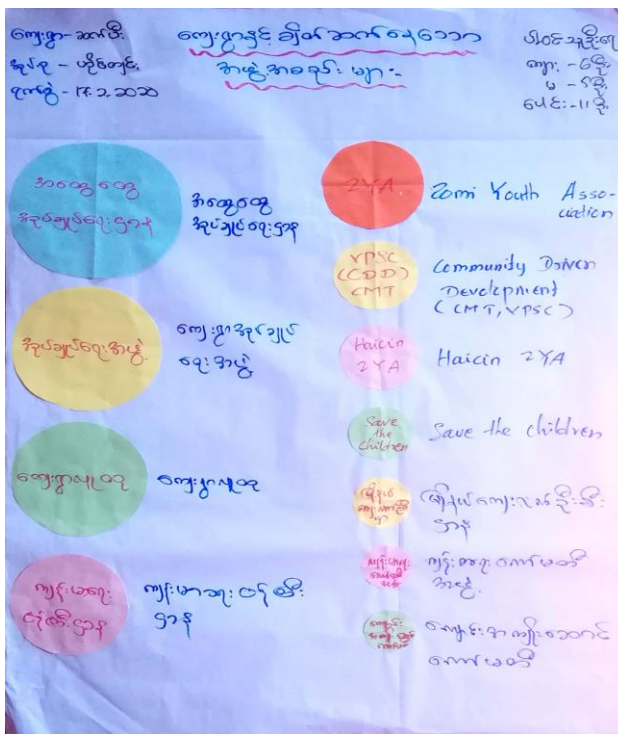 ကျေးရွာ - ဆက်ဗီး
အုပ်စု - ဟိုင်တျင်း
ရက်စွဲ - 17.2.2020
ကျေးရွာနှင့် ချိတ်ဆက်နေသော
အဖွဲ့အစည်းများ :-
ပါဝင်သူဦးရေ
ကျား - 6 ဦး
မ - 5 ဦး
ပေါင်း - 11 ဦး
အထွေထွေ
အုပ်ချုပ်ရေးဌာန
အထွေထွေ
အုပ်ချုပ်ရေးဌာန
အုပ်ချုပ်ရေးအဖွဲ့
ကျေးရွာအုပ်ချုပ်
ရေးအဖွဲ့
ကျေးရွာလူထု
ကျေးရွာလူထု
ကျန်းမာရေး
ဌာန
ကျန်းမာရေး ဝန်ကြီး
ဌာန
ZYA
Zomi Youth Asso-
ciation
VPSC
(CDD)
CMT
Community Driven
Development
(CMT, VPSC)
Haicin
ZYA
Haicin ZYA
Save
the
children
Save the children
မြို့နယ်ကျေးလက်ဦးစီး
ဌာန
ကျန်းမာရေး ကော်မတီ
အဖွဲ့
ကျောင်းအကျိုးဆောင်
ကော်မတီ